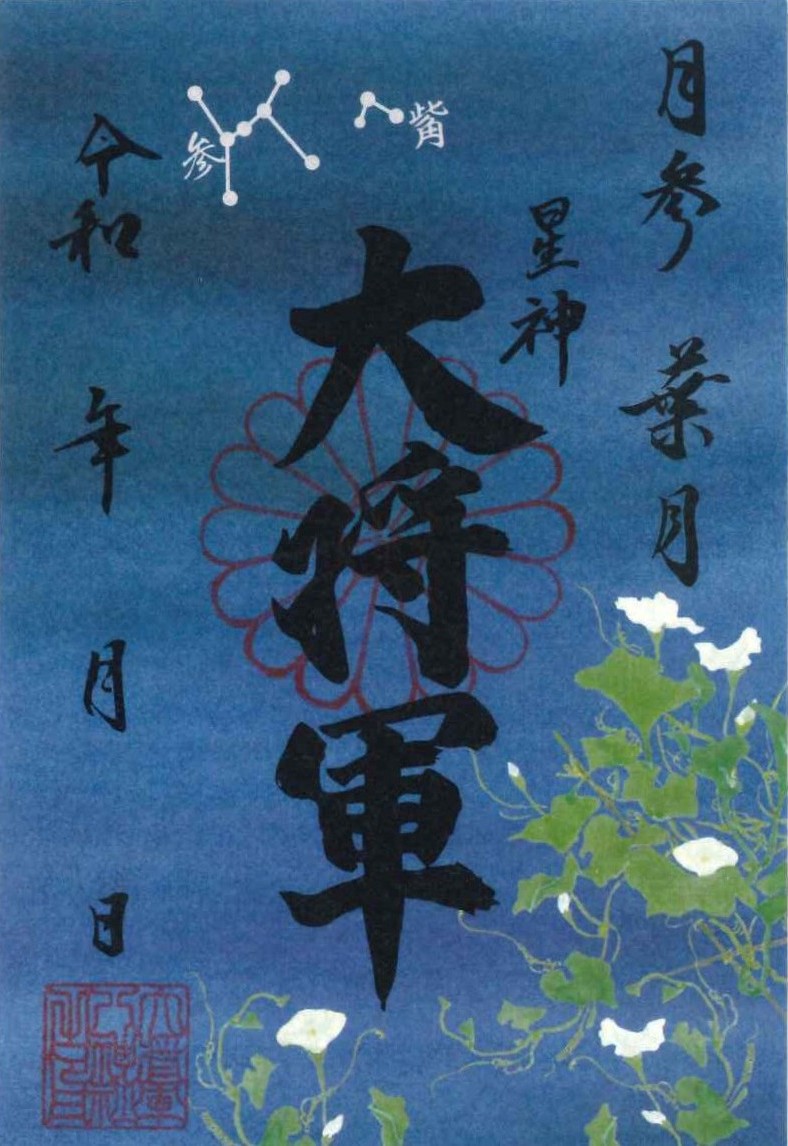 月参 葉月
星神
大将軍
觜
参
令和 年 月 日